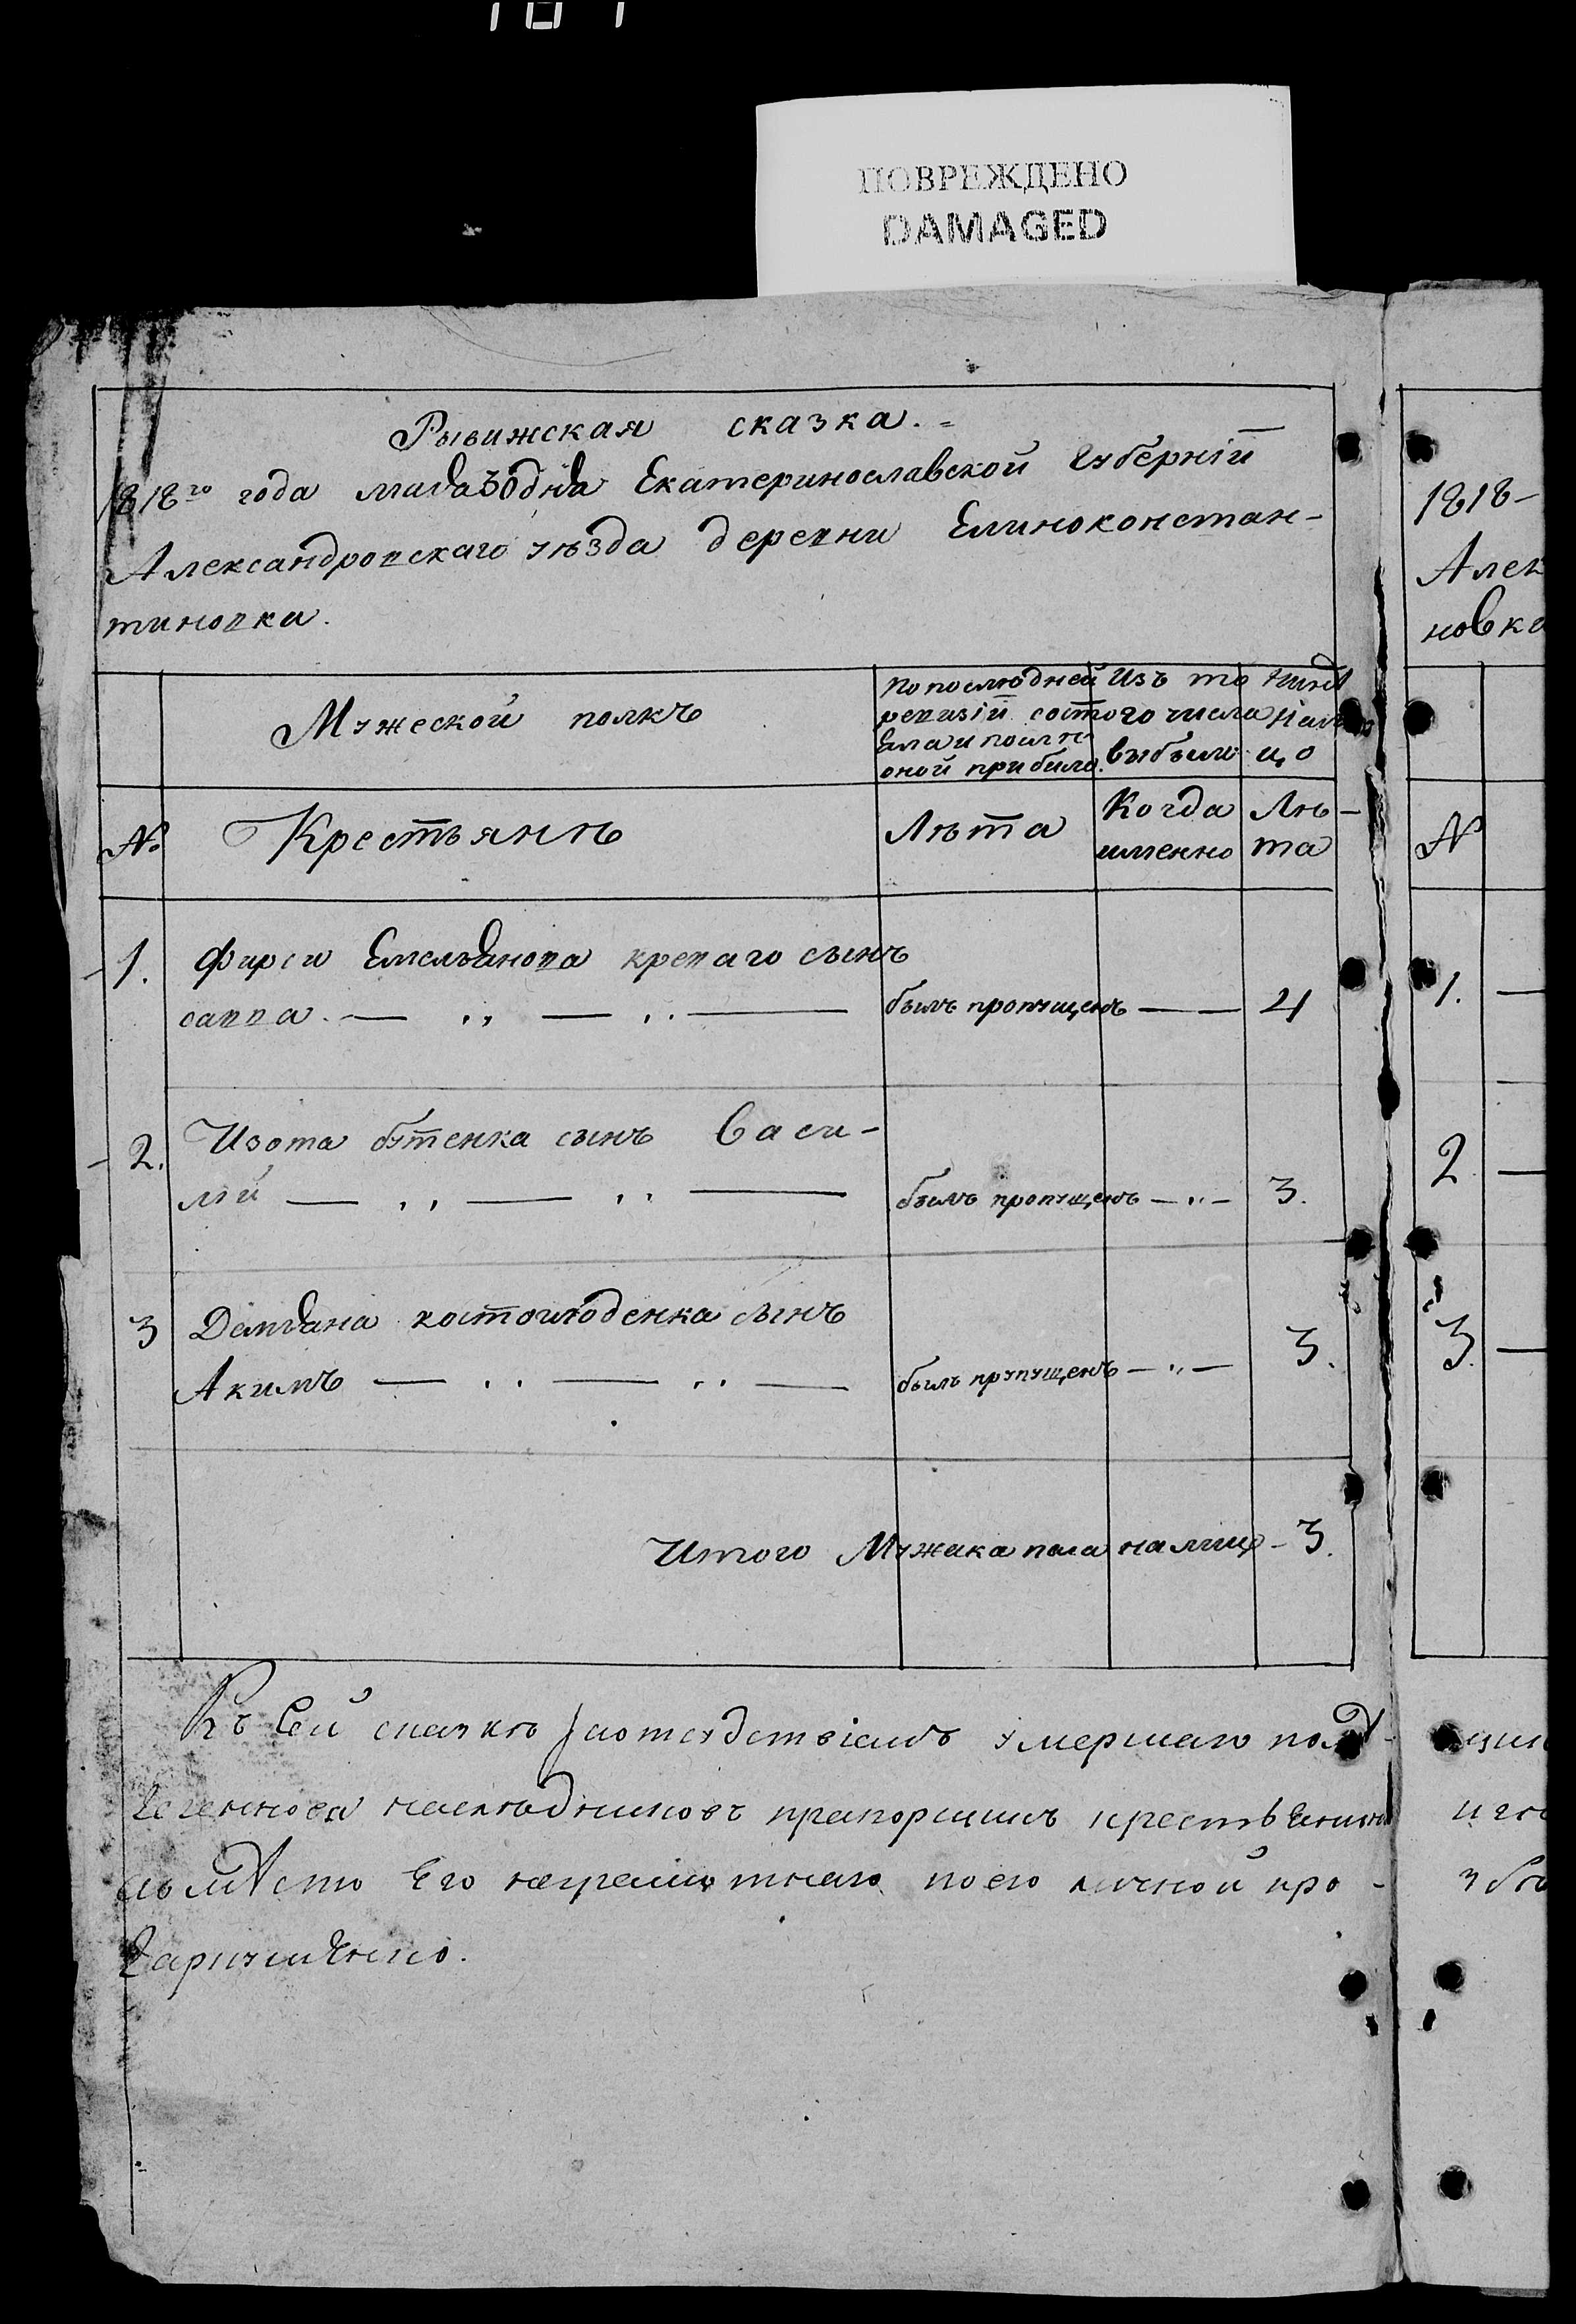 ПОВРЕЖДЕНО
DAMAGED
Рывижская сказка.
1818го года маиа 5 дня Екатеринославской Губерніи
Александровскаго уѣзда деревни Елиноконстан-
тиновки.
Мужеской полкъ
По послѣдней ревизіи состо
ела и послѣ оной прибыло.
Изъ того числа выбыли
Нынѣ На лицо
№ Крестьянѣ Лѣта Когда именно Лѣ-та
1. Фирси Емельянова креваго сынъ
савва. былъ пропущенъ 4
2. Изота бутенка сынъ Васи-
лій былъ пропущенъ 3.
3 Демьяна костоглоденка сынъ
Акимъ былъ прупущенъ 3.
Итого Мужска пола на лицо 3.
Къ сей сказкѣ умершаго
наслѣдниковъ прапорщикъ
Его неграмотнаго по его личной про-
1818-
Алек
новка
№
1.
2
3.